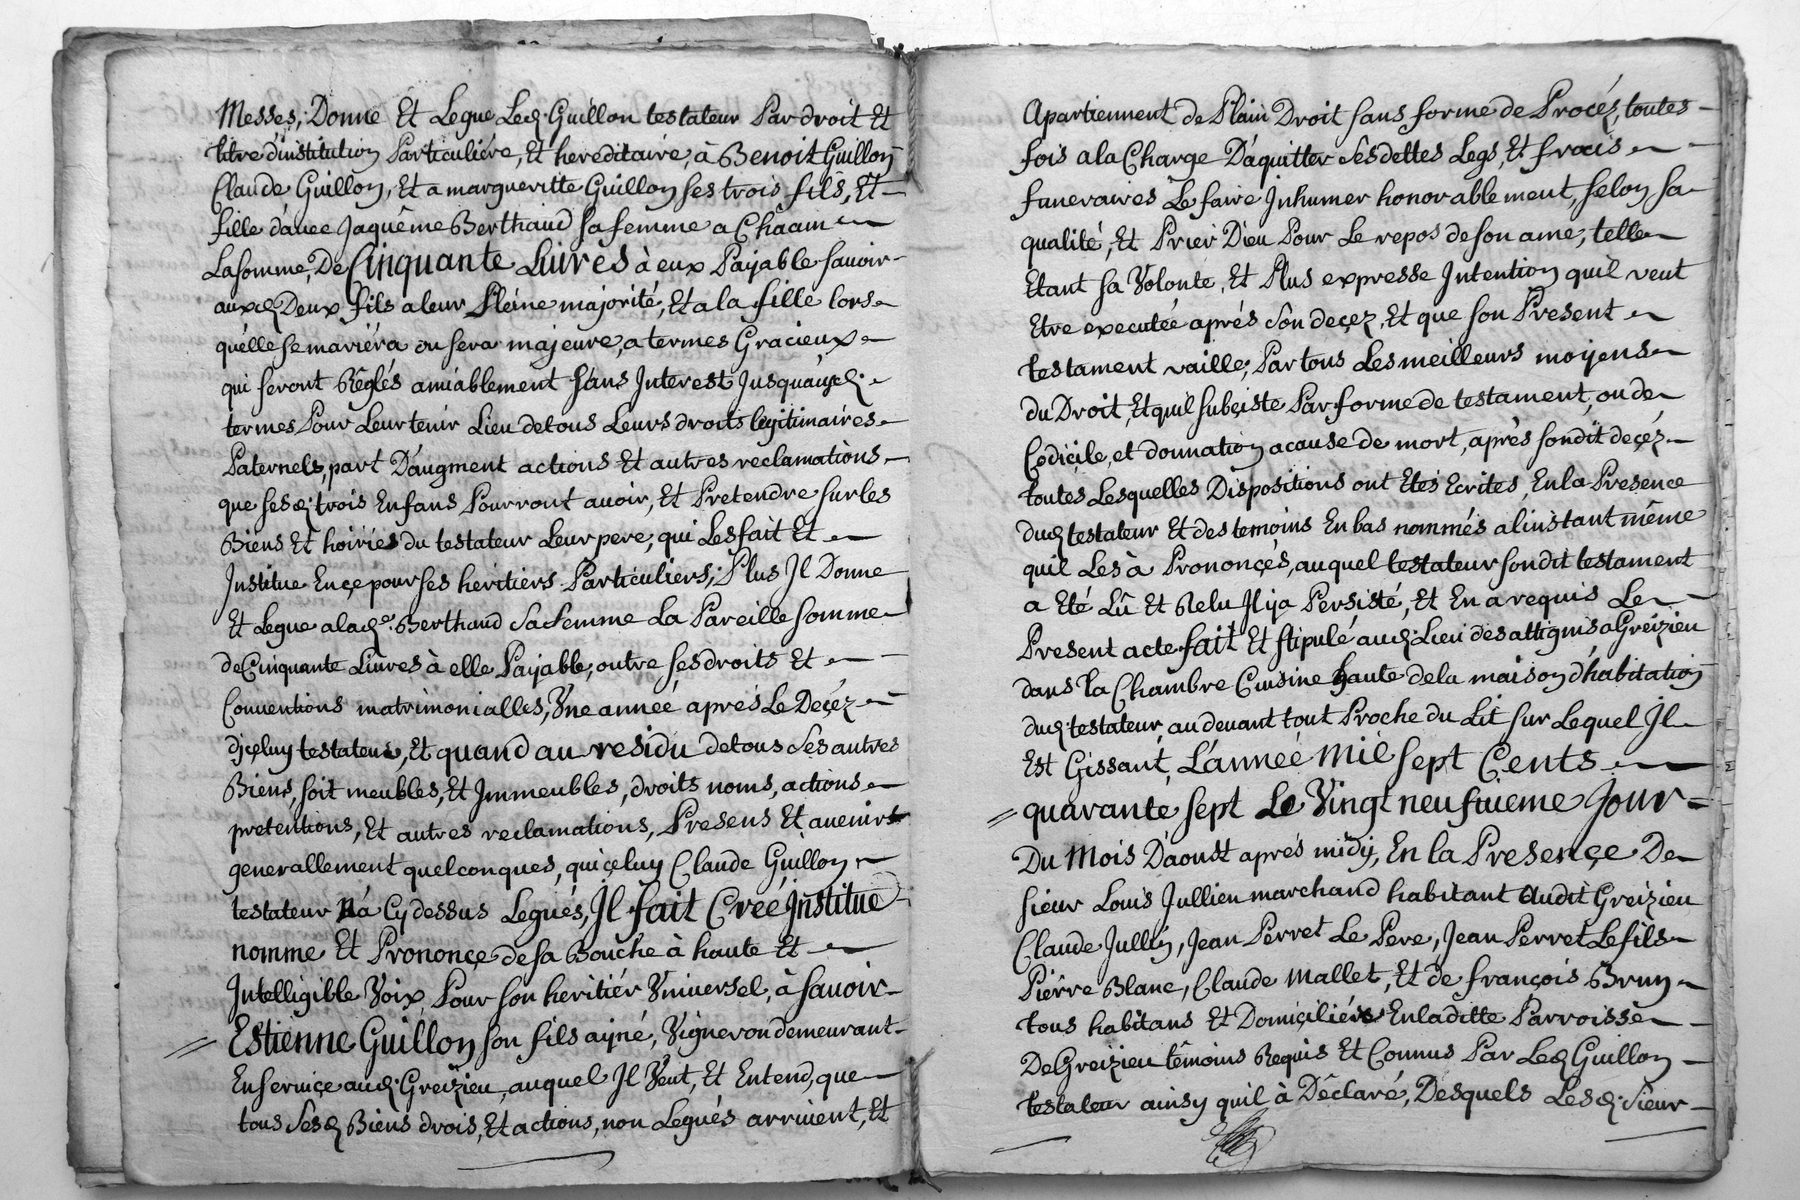 Messes, Donne Et Legue Led. Guillon testateur Par droit Et
titre d'institution Particuliére, Et hereditaire, à Benoit Guillon
Claude Guillon, Et a margueritte Guillon ses trois fils, Et
fille d'avec Jaquême Berthaud sa femme a Châcun
La somme, De Cinquante Livres à eux Payable savoir
auxd. Deux fils a leur Pleine majorité, Et a la fille lors
qu'elle se mariéra ou sera majeure, a termes Gracieux
qui seront Réglés amiablement sans Interest Jusqu'auxd.
termes Pour Leur tenir Lieu de tous Leurs droits legitimaires
Paternels, part D'augment actions Et autres reclamations,
que sesd. trois Enfans Pourront avoir, Et Pretendre sur les
Biens Et hoiries du testateur Leur pere, qui Les fait Et
Institue En çe pour ses héritiers Particuliers; Plus Il Donne
Et Legue a lad.e Berthaud Sa femme La Pareille somme
de Cinquante Livres à elle Payable, outre ses droits Et
Conventions matrimonialles, Vne année aprés Le Déçéz
d'jçeluy testateur, Et quand au residu de tous Ses autres
Biens, soit meubles, Et Immeubles, droits noms, actions
pretentions, Et autres reclamations, Presens Et avenirs
generallement quelconques, qu'içeluy Claude Guillon
testateur Na Cy dessus Legués, Il fait Creé Institue
nomme Et Prononçe de sa Bouche à haute Et
Intelligible Voix Pour son heritiér Vniversel, à savoir
Estienne Guillon son fils ayné, Vigneron demeurant
En service aud. Greizieu, auquel Il Veut, Et Entend, que
tous Sesd. Biens drois, Et actions, non Legués arrivent, Et
Apartiennent de Plain Droit sans forme de Procés, toutes
fois a la Charge D'aquitter ses dettes Legs, Et frais
funeraires Le faire Inhumer honorablement, selon sa
qualité, Et Prier Dieu Pour Le repos de son ame, telle
Etant sa Volonte, Et Plus expresse Intention qu'il veut
Etre executée aprés Son deçez, Et que son Present
testament vaille, Par tous Les meilleurs moyens
du Droit, Et qu'il subçiste Par forme de testament, ou de
Codiçile, et donnation a cause de mort, aprés sondit deçéz
toutes Lesquelles Dispositions ont Etés Ecrites, En la Presence
dud. testateur Et des temoins En bas nommés a l'instant même
qu'il Les à Prononçes, auquel testateur sondit testament
a Eté Lû Et Relu Il y a Persisté, Et En a requis Le
Present acte fait Et stipulé aud. Lieu des attignis a Greizieu
dans la Chambre Cuisine haute de la maison d'habitation
dud. testateur, au devant tout Proche du Lit sur Lequel Il
Est Gissant, L'année Mil sept Cents
quarante sept Le Vingt neufvieme Jour
Du Mois D'aoust aprés midy, En la Presençe De
sieur Louis Jullien marchand habitant Audit Greizieu
Claude Jullin, Jean Perret Le Pere, Jean Perret Le fils
Piérre Blanc, Claude Mallet, Et de françois Brun
tous habitans Et Domiçiliérs En laditte Parroisse
De Greizieu têmoins Requis Et Connus Par Led. Guillon
testateur ainsy qu'il à Déclaré, Desquels Lesd. Sieur